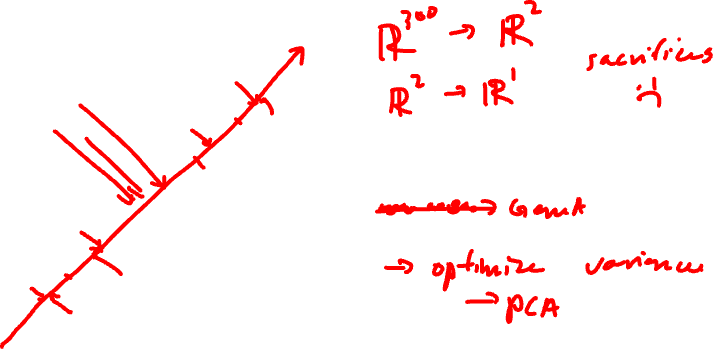 ℝ³⁰⁰ → ℝ²
ℝ² → ℝ¹
sacrifices
→ optimize variance
→ PCA